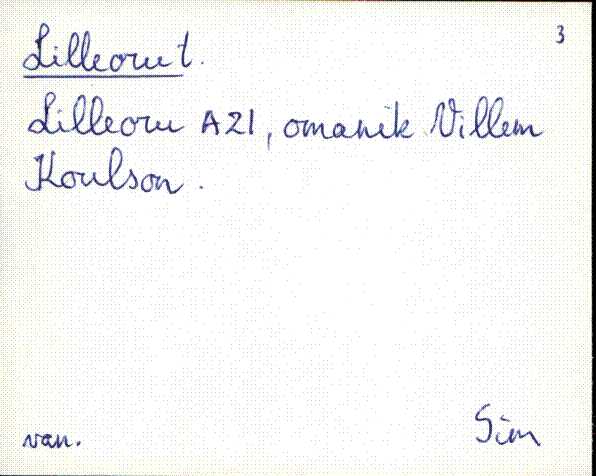 3
Lilleoru t.
Lilleoru A21, omanik Villem
Koulson.
van. Sim